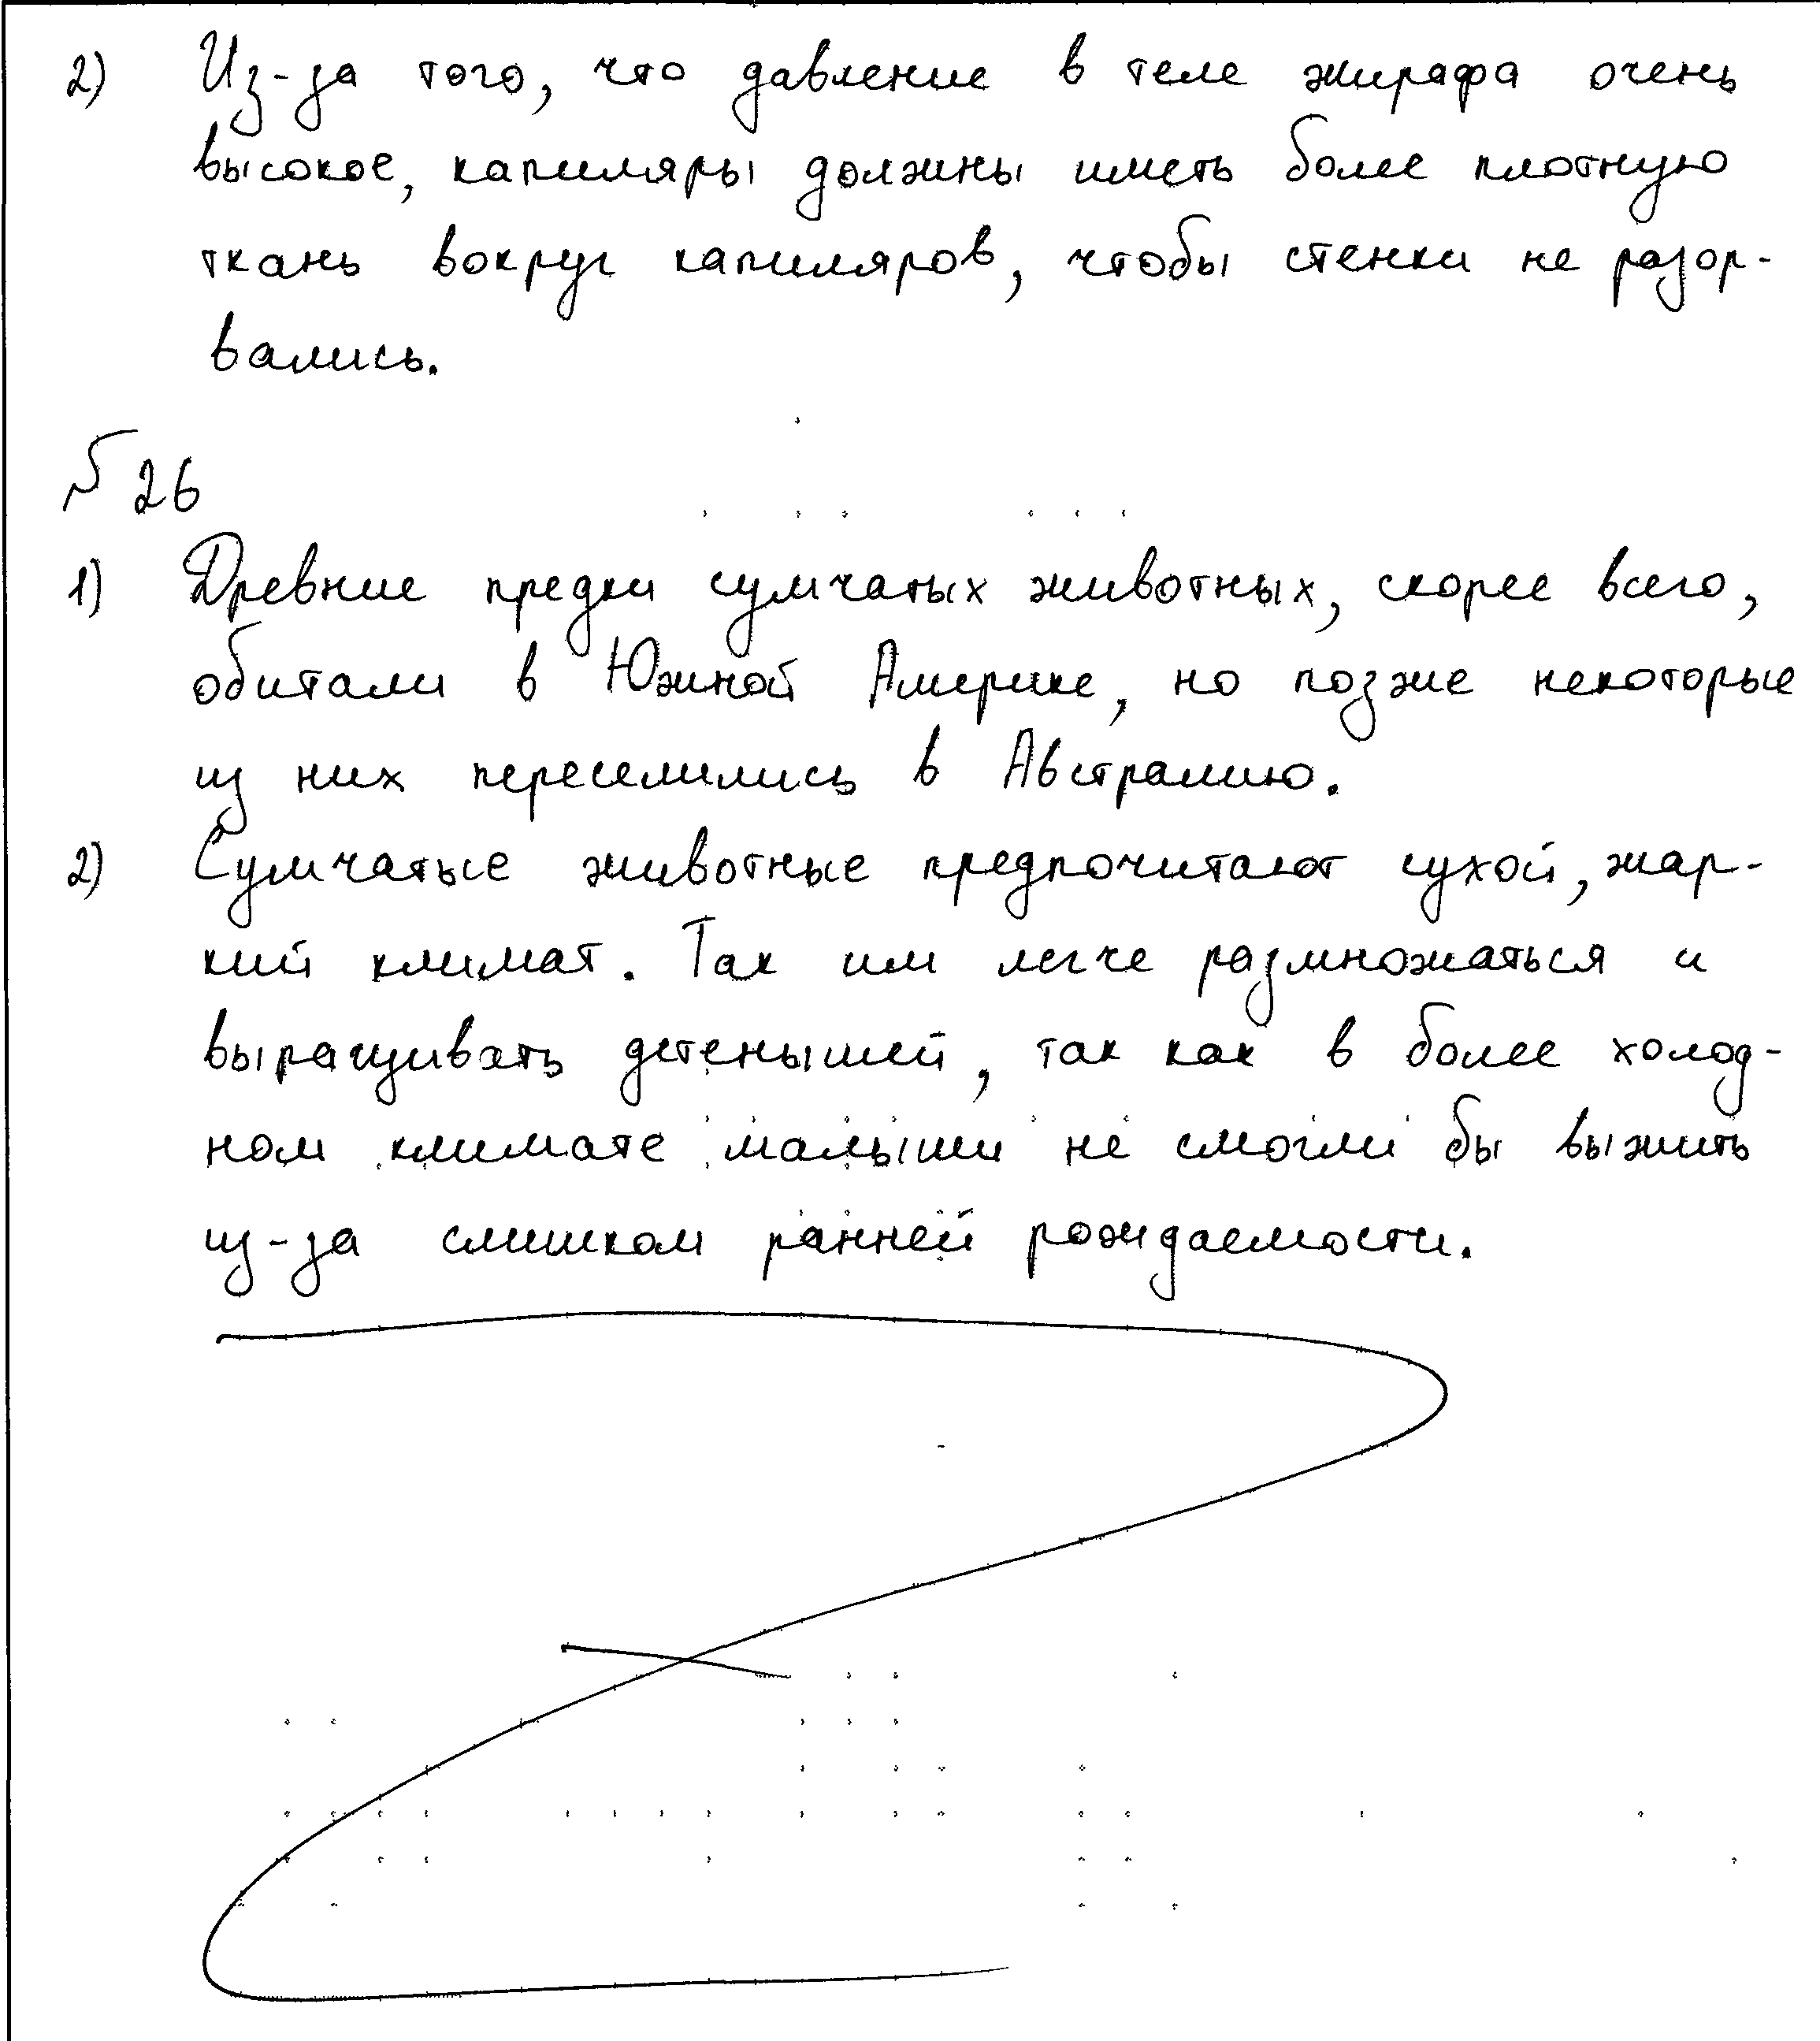 2) Из-за того, что давление в теле жирафа очень
высокое, капиляры должны иметь более плотную
ткань вокруг капиляров, чтобы стенки не разор-
вались.
№ 26
1) Древние предки сумчатых животных, скорее всего,
обитали в Южной Америке, но позже некоторые
из них переселились в Австралию.
2) Сумчатые животные предпочитают сухой, жар-
кий климат. Так им легче размножаться и
выращивать детенышей, так как в более холод-
ном климате малыши не смогли бы выжить
из-за слишком ранней рождаемости.